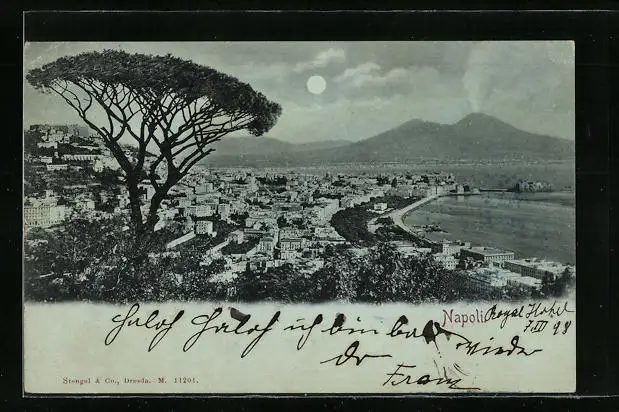 Napoli Royal Hotel
7.III 98
Haloh Haloh ich bin bald wieder
Dr
Franz
Stengel & Co., Dresda. M. 11201.